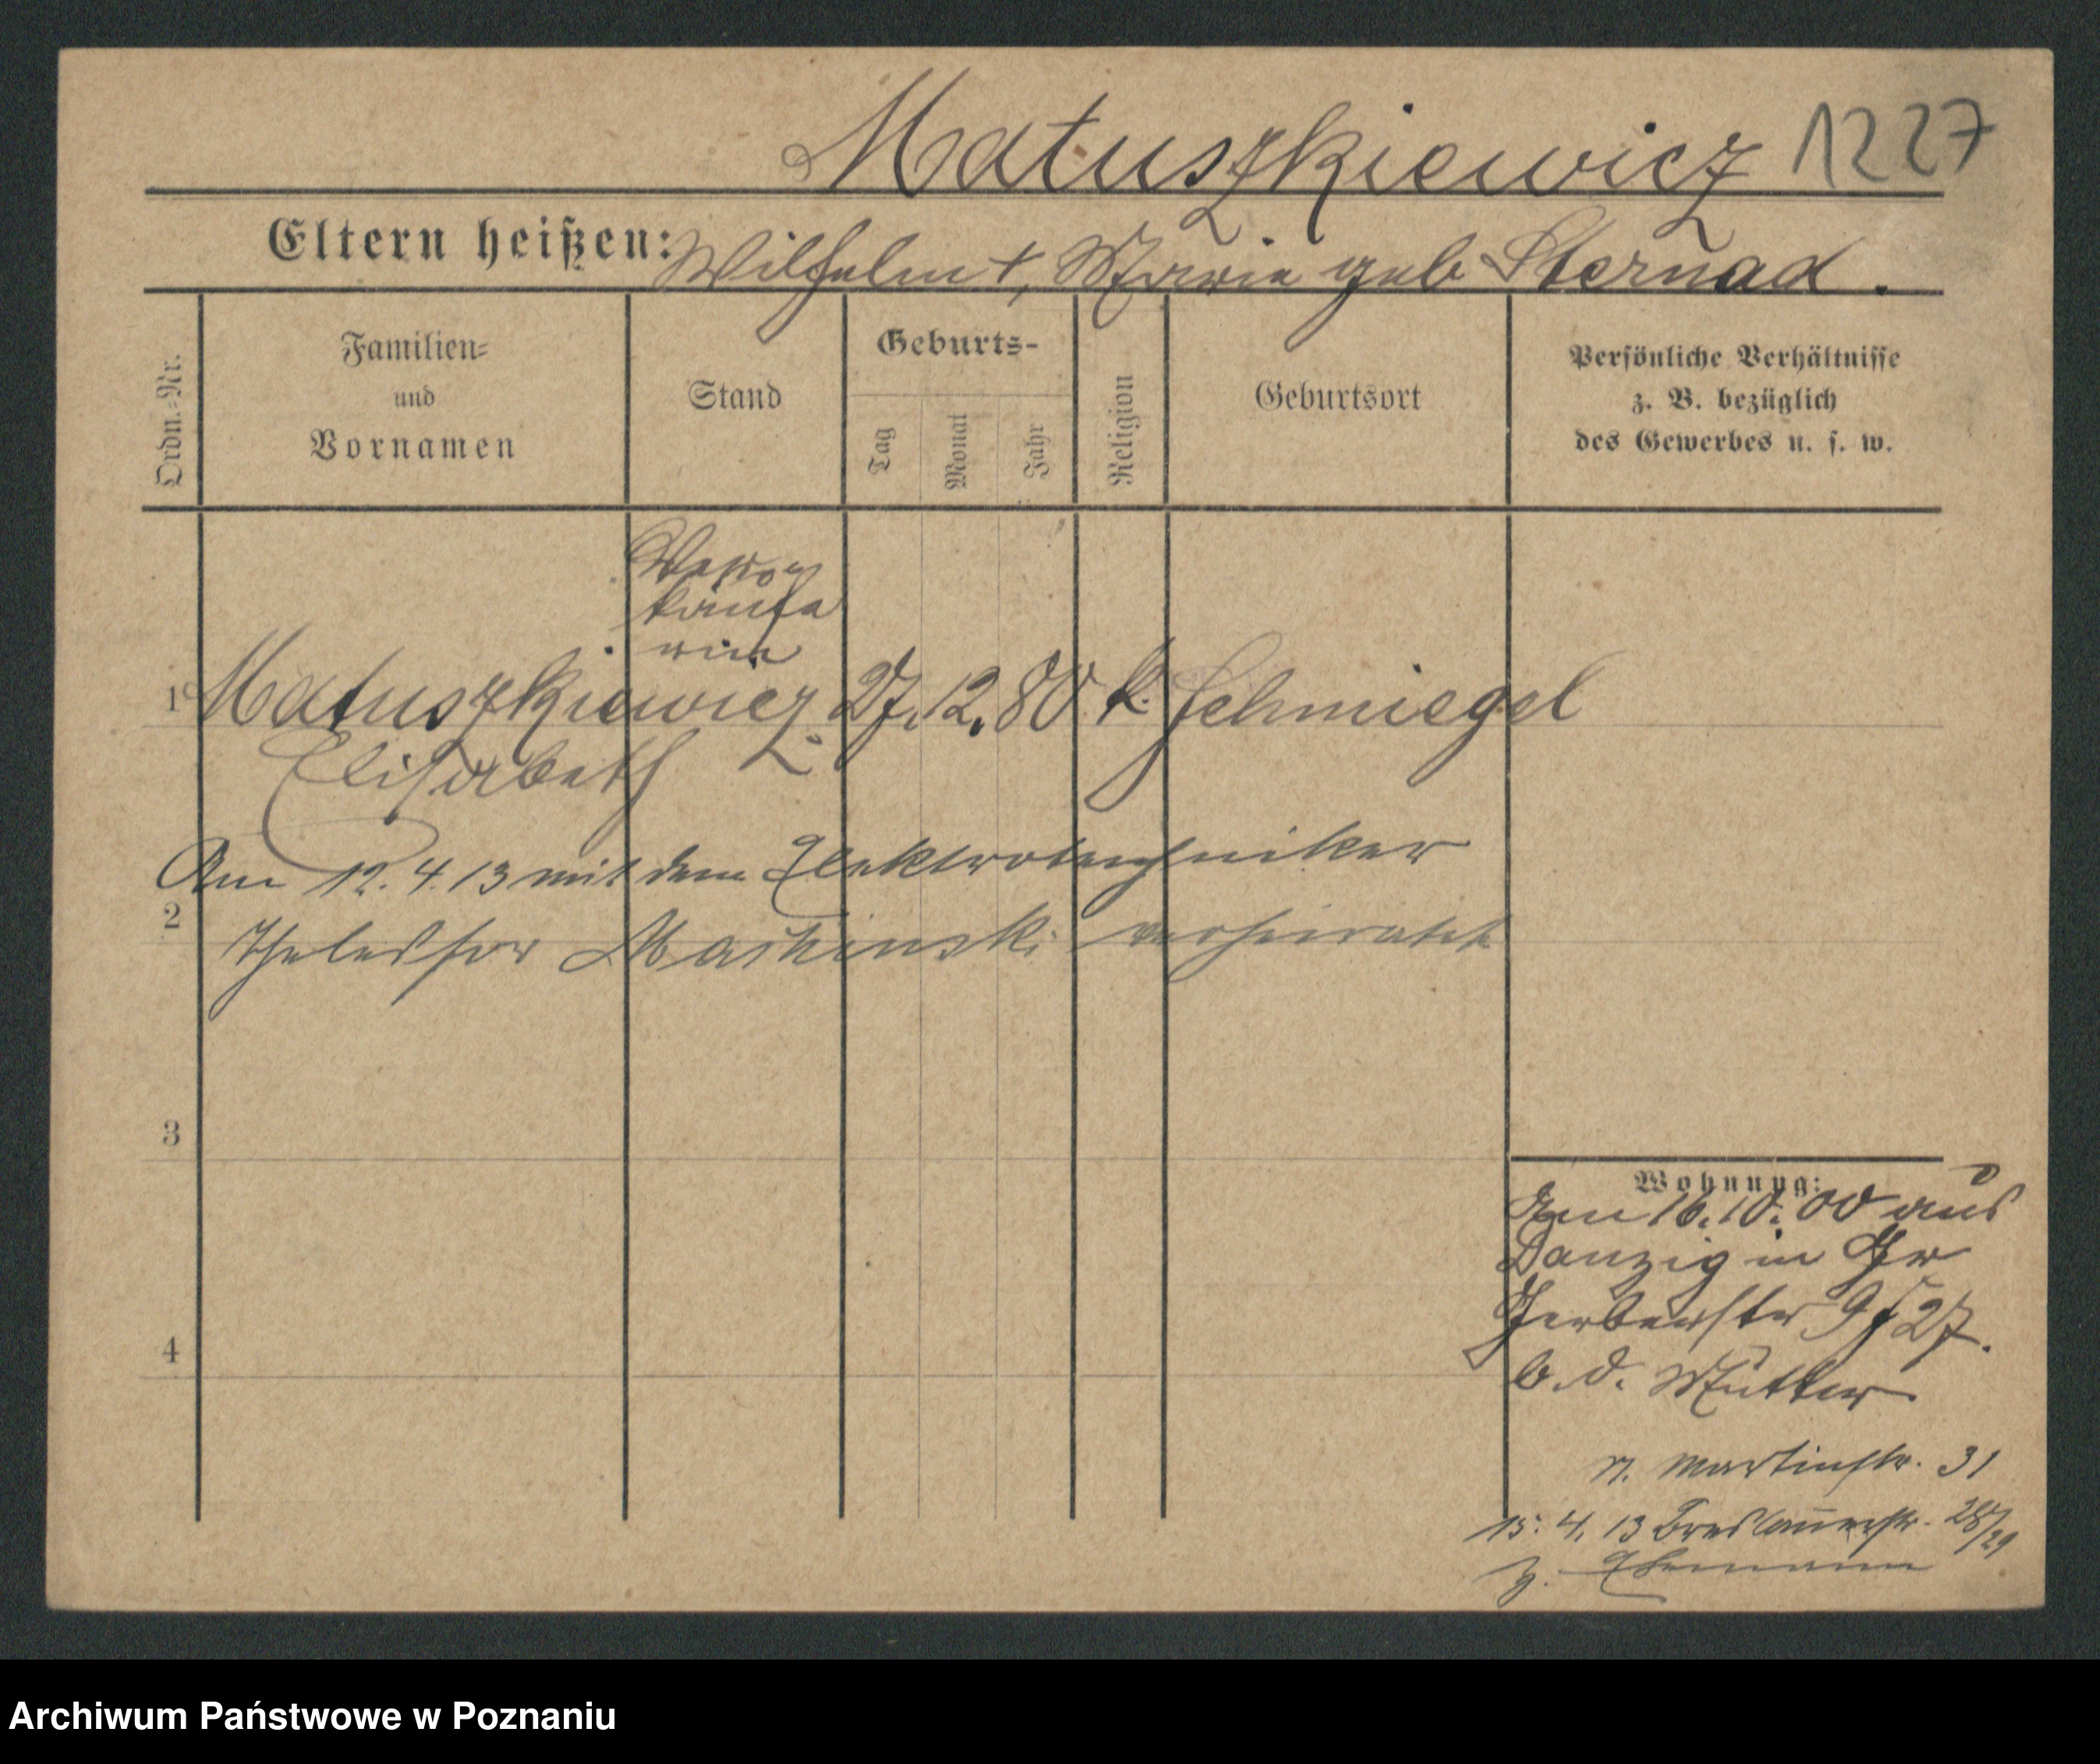 Matuszkiewicz 1227
Eltern heißen: Wilhelm +, Marie geb Sternad.
Ordn.=Nr.
Familien=
und
Vornamen
Stand
Geburts-
Tag
Monat
Jahr
Religion
Geburtsort
Persönliche Verhältnisse
z. B. bezüglich
des Gewerbes u. s. w.
käufe
rin
1 Matuszkiewicz 27. 12. 80 k. Schmiegel
Elisabeth
Am 12. 4. 13 mit dem Elektrotechniker
2
Thelesfor verheiratet
3
4
Wohnung:
Am 16. 10. 00 aus
Danzig in Gr
Gerberstr 27.
b. d. Mutter
n. Martinstr. 31
15. 4. 13 Breslauerstr. 28/29
z. Ehemann
Archiwum Państwowe w Poznaniu